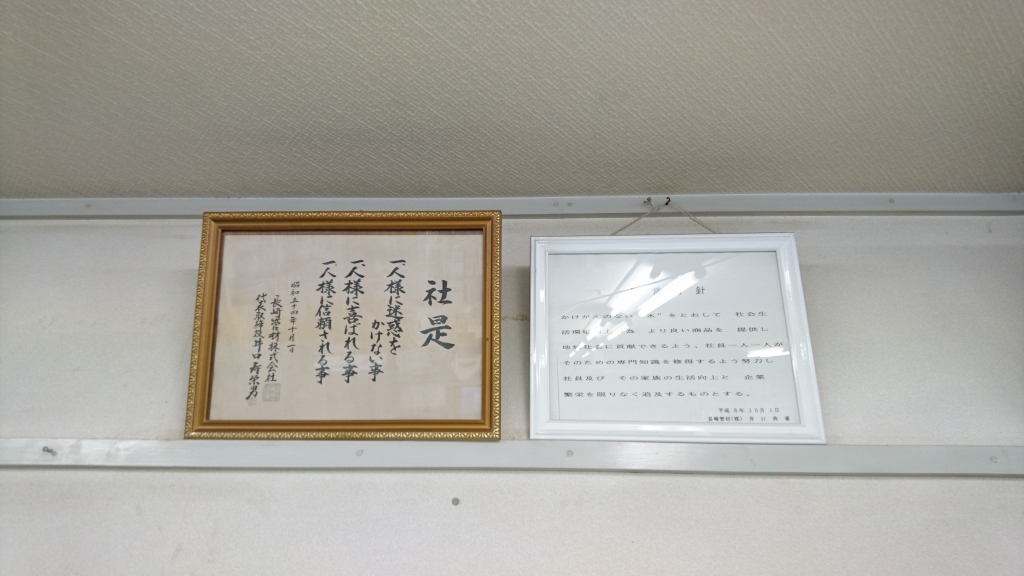 社是
一、人様に迷惑を
かけない事
一、人様に喜ばれる事
一、人様に信頼される事
昭和五十四年十月一日
長崎管材株式会社
代表取締役 井口寿栄男
針
かけがえのない "水" をとおして 社会生
活環境 為 より良い商品を 提供し
地域社会に貢献できるよう、社員一人一人が
そのための専門知識を修得するよう努力し
社員及び その家族の生活向上と 企業
繁栄を限りなく追及するものとする。
平成 8年 10月 1日
長崎管材(株) 井口